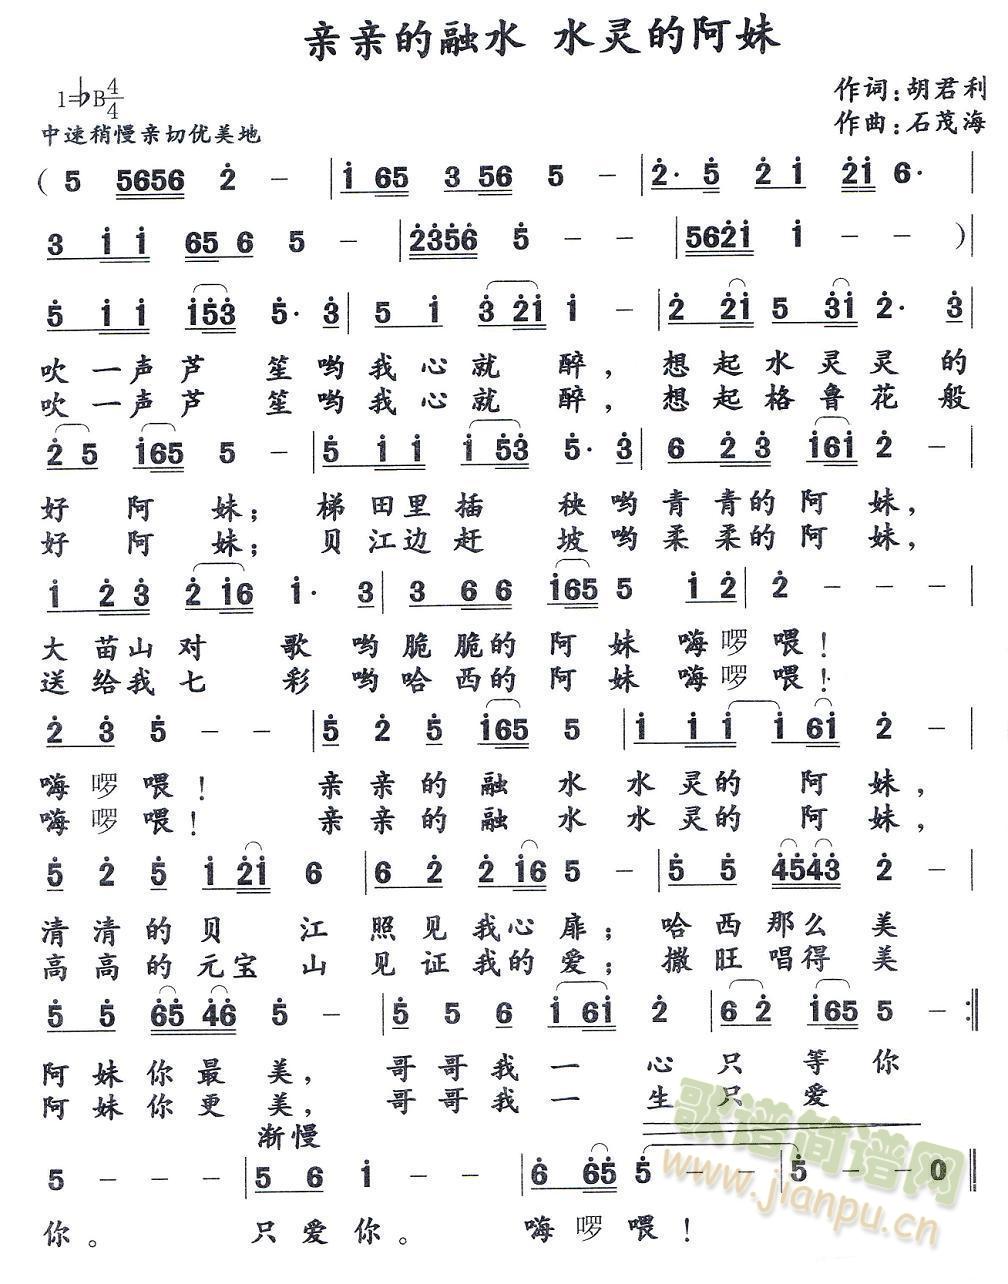 亲亲的融水 水灵的阿妹
1=♭B 4/4
作词:胡君利
中速稍慢亲切优美地
作曲:石茂海
( 5 5656 2̇ － | 1̇ 65 3 56 5 － | 2̇· 5̇ 2̇ 1̇ 2̇1̇ 6· |
3 1̇ 1̇ 65 6 5 － | 2̇3̇5̇6̇ 5̇ － － | 5621̇ 1̇ － － ) |
5̇ 1̇ 1̇ 1̇5̇3̇ 5̇· 3̇ | 5 1̇ 3̇ 2̇1̇ 1̇ － | 2̇ 2̇1̇ 5 3̇1̇ 2̇· 3̇ |
吹一声芦 笙哟我心就 醉,想起水灵灵的
吹一声芦 笙哟我心就 醉,想起格鲁花般
2̇ 5 1̇65 5 － | 5̇ 1̇ 1̇ 1̇ 5̇3̇ 5̇· 3̇ | 6 2̇ 3̇ 1̇61̇ 2̇ － |
好 阿 妹; 梯田里插 秧哟青青的阿妹,
好 阿 妹; 贝江边赶 坡哟柔柔的阿妹,
1̇ 2̇ 3̇ 2̇ 1̇6 1̇· 3̇ | 3 6 6 1̇65 5 1̇ 2̇ | 2̇ － － － |
大苗山对 歌 哟脆脆的 阿妹嗨啰喂!
送给我七 彩 哟哈西的 阿妹嗨啰喂!
2̇ 3̇ 5̇ － － | 5̇ 2̇ 5̇ 1̇65 5 | 1̇ 1̇ 1̇ 1̇ 61̇ 2̇ － |
嗨啰喂! 亲亲的融 水 水灵的 阿妹,
嗨啰喂! 亲亲的融 水 水灵的 阿妹,
5̇ 2̇ 5̇ 1̇ 2̇1̇ 6 | 6 2̇ 2̇ 1̇6 5 － | 5̇ 5̇ 4̇5̇4̇3̇ 2̇ － |
清清的贝 江 照见我心扉; 哈西那么 美
高高的元宝 山 见证我的爱; 撒旺唱得 美
5̇ 5̇ 6̇5̇ 4̇6̇ 5̇ － | 5̇ 5 6 1̇ 61̇ 2̇ | 6̇ 2̇ 1̇65 5 － :‖
阿妹你最 美, 哥哥我一 心 只 等 你
阿妹你更 美, 哥哥我一 生 只 爱
渐慢
5 － － － | 5 6 1̇ － | 6̇ 6̇5̇ 5̇ － － | 5̇ － － 0 ‖
你。 只爱你。 嗨啰喂!
歌谱简谱网
www.jianpu.cn